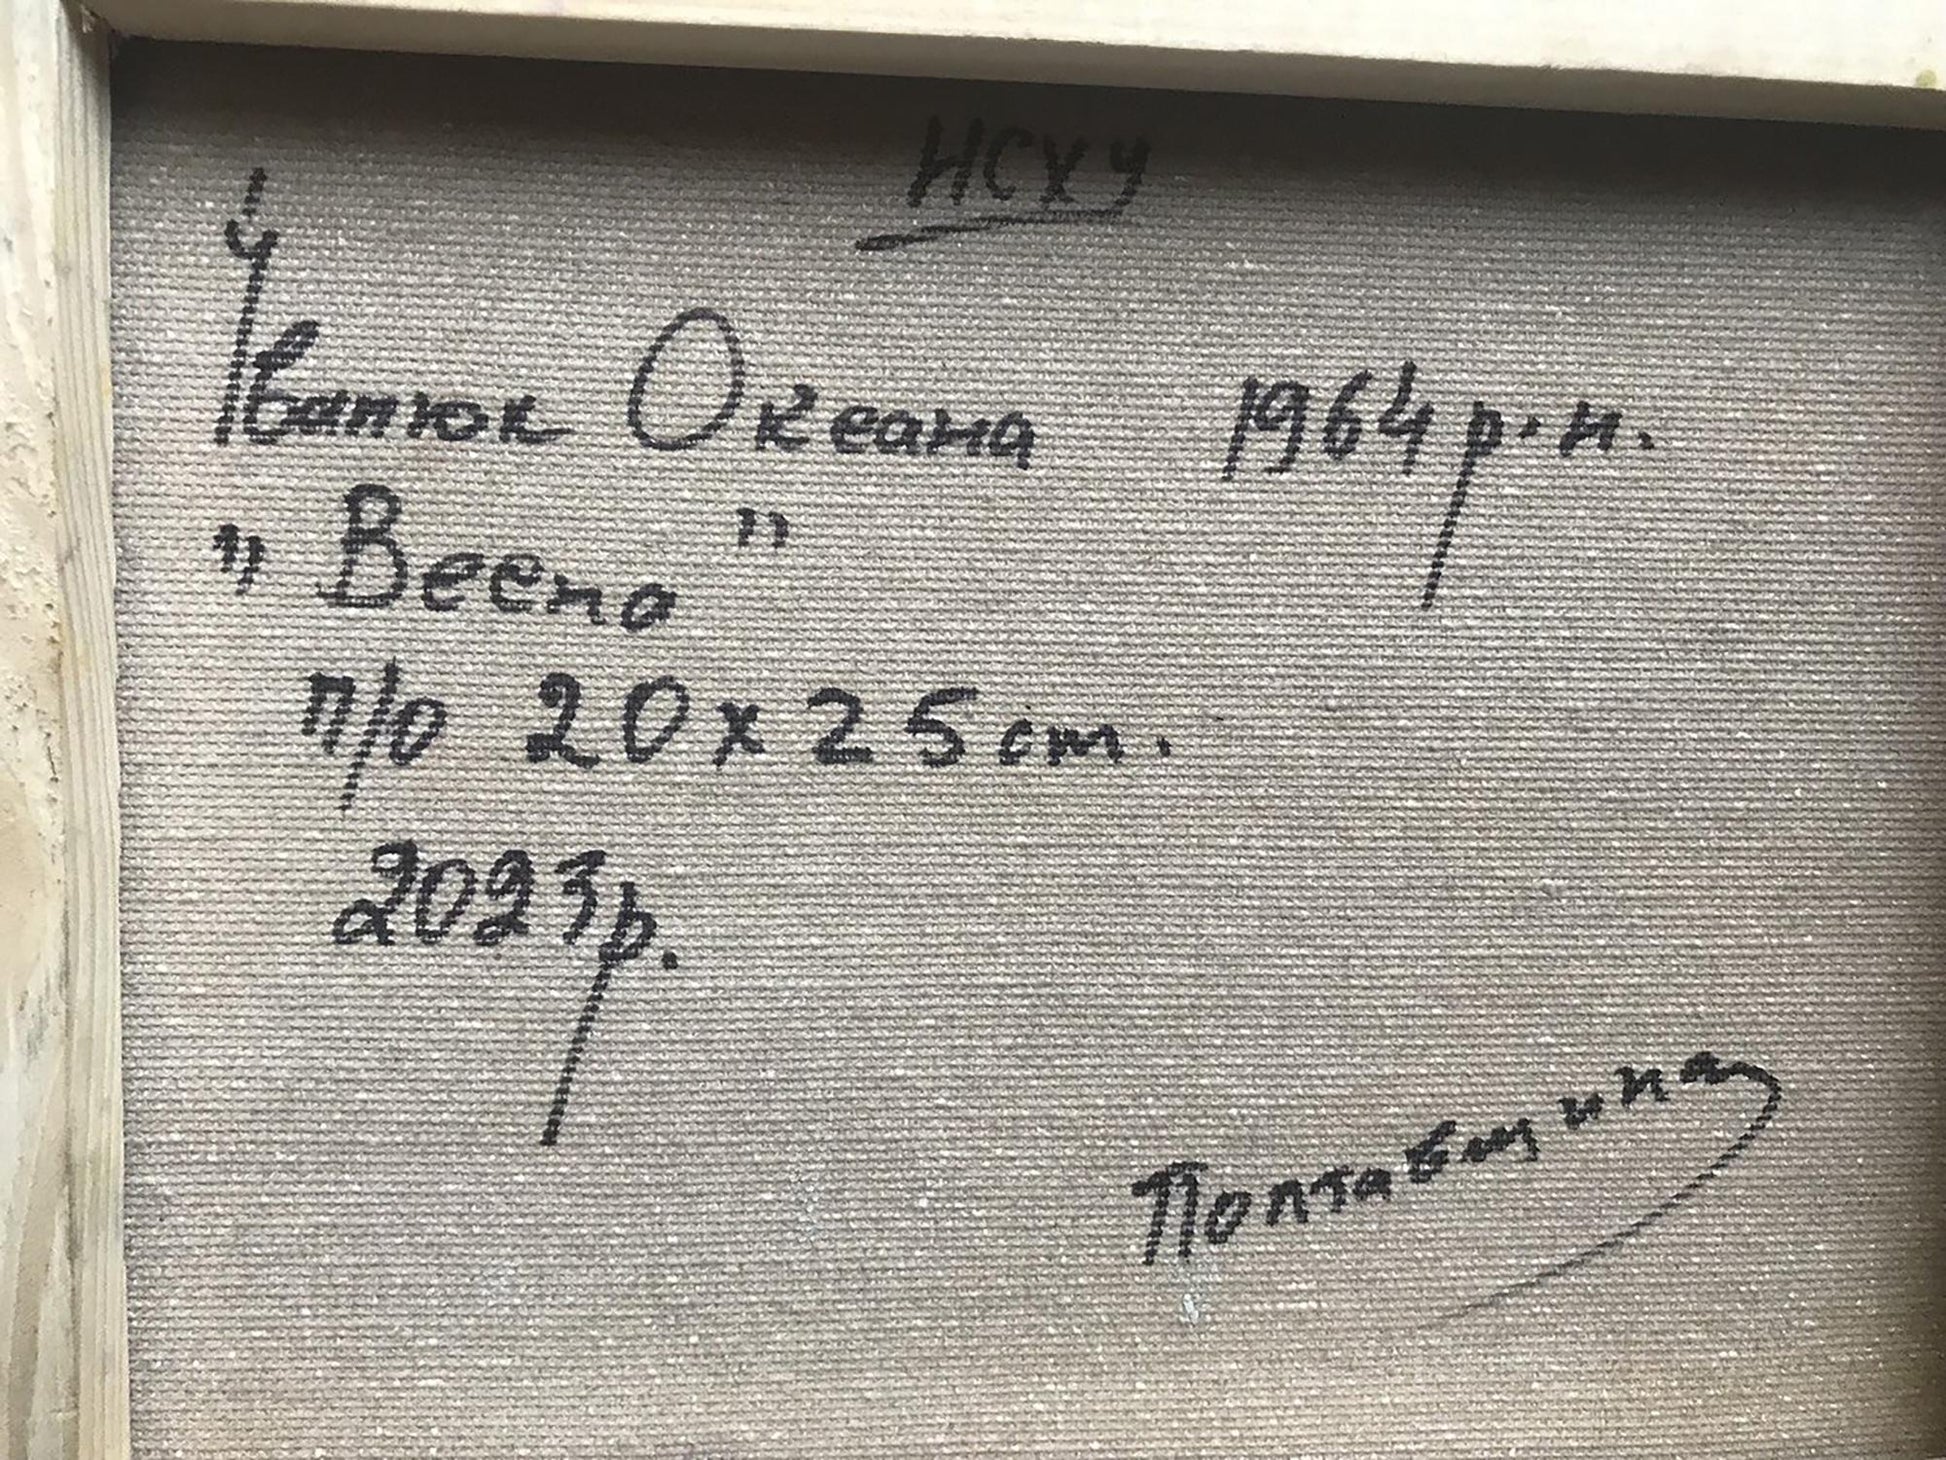 НСХУ
Іванюк Океана 1964 р.н.
„Весна"
п/о 20х25 cm.
2023р.
Полтавщина